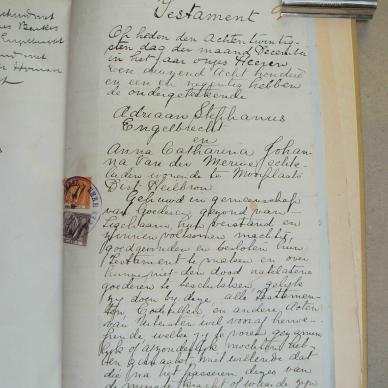 Testament
Op heden den Achtentwintig-
sten dag der maand December
in het jaar onzes Heeren,
Een duizend Acht honderd
en een en negentig hebben
de ondergeteekende
Adriaan Stephanus
Engelbrecht
en
Anna Catharina Johan-
na Van der Merwe, echte-
lieden wonende te
Dist Heilbron
Gehuwd in gemeenschap
van Goederen, gezond van
Ligchaam, hun verstand en
zinnen volkomen machtig,
goedgevonden en besloten hun
Testament te maken en over
hunne met den dood natelatene
goederen te beschikken, gelijk
zij doen by deze, alle Testamen-
ten, Codicillen en andere Acten
van Uitersten wil vooraf herroe-
pende welke zij te voren gezamen-
lijk of afzonderlijk mochten heb-
ben gemaakt niet willende dat
die na het passeren dezes van
de minste kracht of waarde zijn